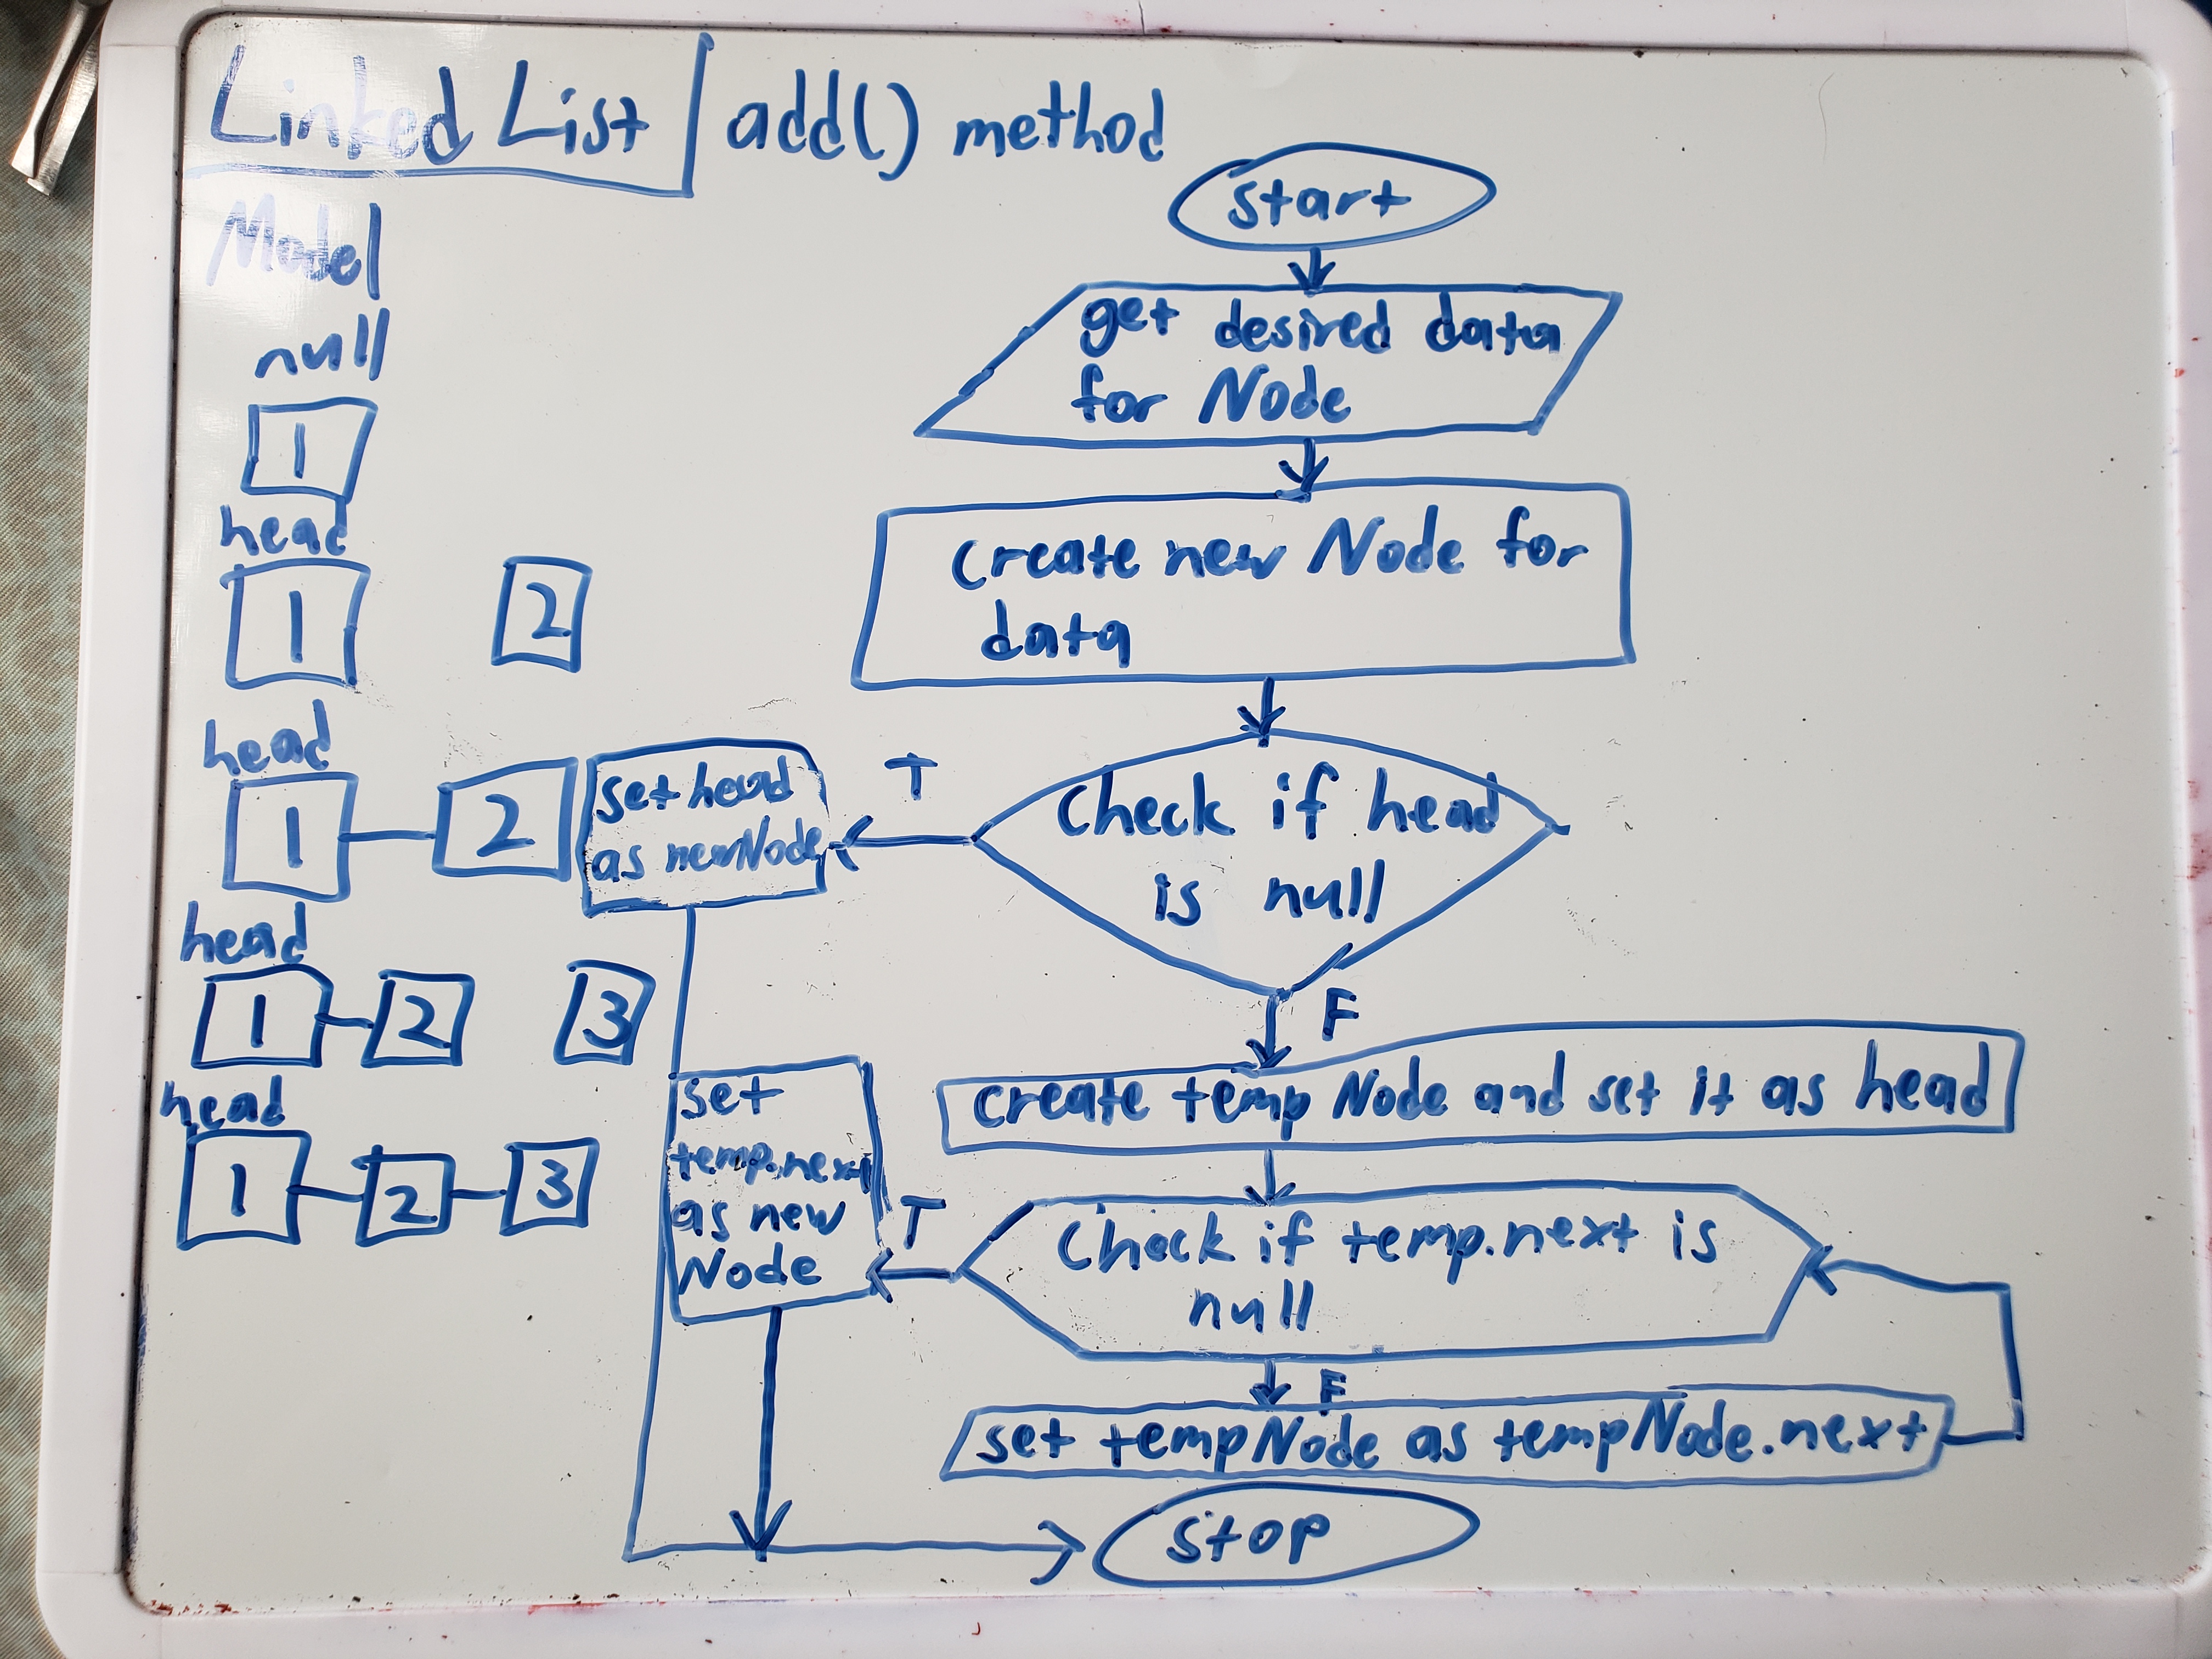 Linked List add() method
Model
null
1
head
1 2
head
1 2
head
1 2 3
head
1 2 3
start
get desired data
for Node
create new Node for
data
Check if head
is null
T
set head
as newNode
F
create temp Node and set it as head
Check if temp.next is
null
T
set
temp.next
as new
Node
F
set tempNode as tempNode.next
stop